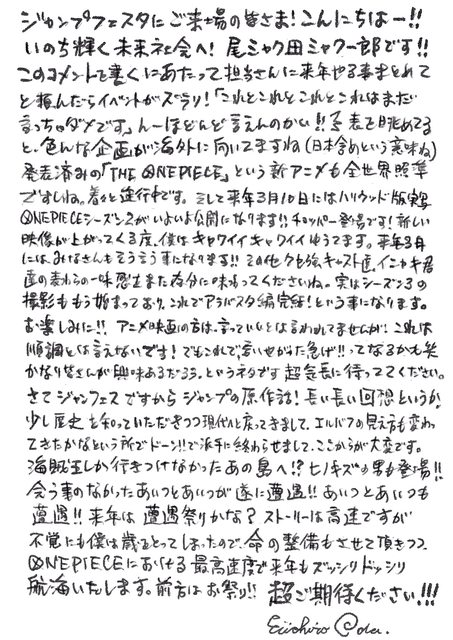 ジャンプフェスタにご来場の皆さま！こんにちはー!!
いのち輝く未来社会へ！尾ミャク田ミャク一郎です!!
このコメントを書くにあたって担当さんに来年やる事をくれて
と頼んだらイベントがズラリ！「これとこれとこれとこれはまだ
言っちゃダメです」んーほどんど言えんのかい!!予表を眺めてる
と、色んな企画が海外に向いてますね（日本含めという意味ね）
発表済みの「THE ONE PIECE」という新アニメも全世界照準
ですしね。着々と進行中です。そして来年3月10日にはハリウッド版実写
ONE PIECEシーズン2がいよいよ公開になります!!チョッパー登場です！新しい
映像が上がってくる度、僕はキャワイイキャワイイゆうてます。来年3月
には、みなさんもそう言う事になります!! その他クセ強キャスト達、イニャキ君
達の麦わらの一味感もまた存分に味わってくださいね。実はシーズン3の
撮影ももう始まっており、これでアラバスタ編完結！という事になります。
お楽しみに!! アニメ映画の方は、言っていいとは言われてませんが、これは
順調とは言えないです！でもこれで言いせがった急げ!!ってなるかも笑
かなり皆さんが興味あるだろう、というネタです 超気長に待っててください。
さてジャンフェスですからジャンプの原作話！長い長い回想というか
少し歴史を知っていただきつつ現代へと戻ってきまして、エルバフの見え方も変わっ
てきたかなという所でドーン!!で派手に終わらせまして、ここからが大変です。
海賊王しか行きつけなかったあの島へ!? ヒノキズの男も登場!!
会う事のなかったあいつとあいつが遂に遭遇!! あいつとあいつも
遭遇!! 来年は 遭遇祭りかな？ ストーリーは高速ですが
不覚にも僕は歳をとってしまったので、命の整備もさせて頂きつつ
ONE PIECEにおける最高速度で来年もズッシリドッシリ
航海いたします。前方はお祭り!! 超ご期待ください!!!
Eiichiro Oda.